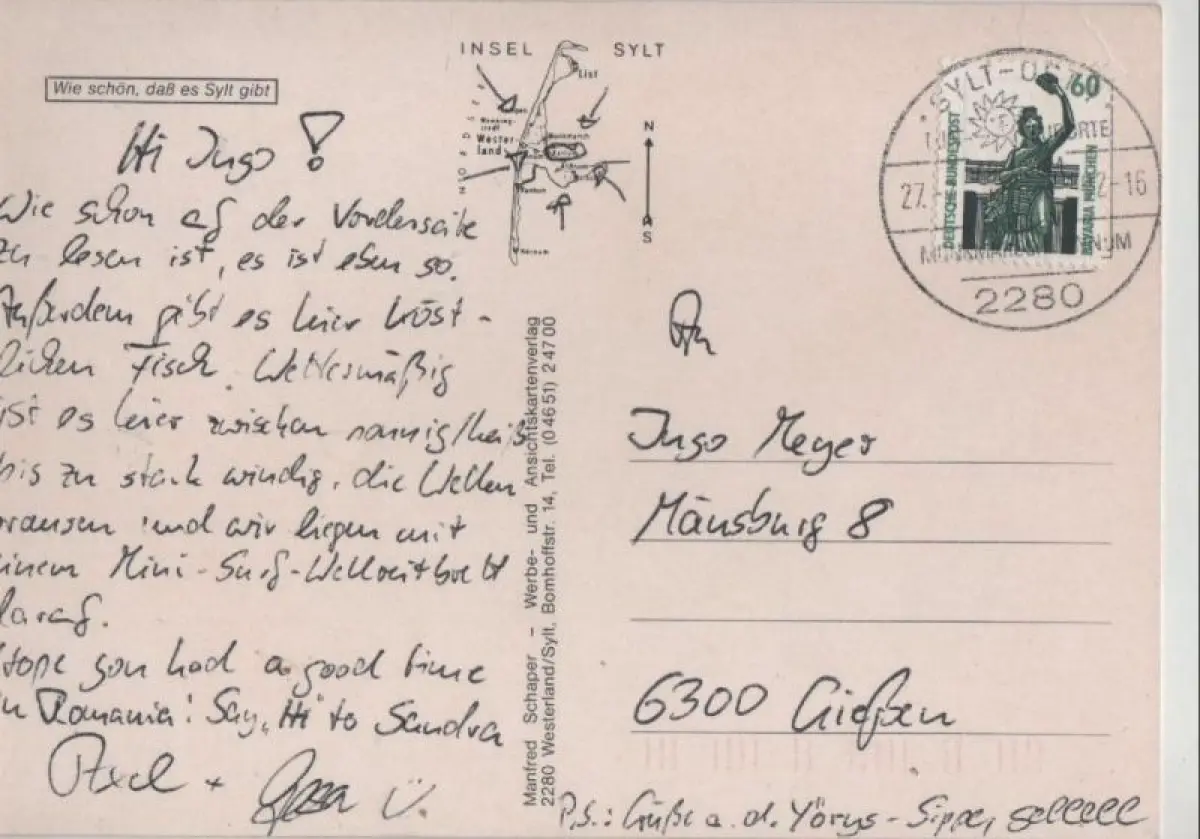 Wie schön, daß es Sylt gibt
INSEL SYLT
List
Wester-
land
N
S
SYLT-OST
60
DEUTSCHE BUNDESPOST
BAVARIA MÜNCHEN
27.
-16
2280
Hi Ingo!
Wie schon auf der Vorderseite
zu lesen ist, es ist eben so.
Außerdem gibt es hier köst-
lichen Fisch. Wettermäßig
ist es hier zwischen sonnig/heiß
bis zu stark windig, die Wellen
brausen und wir liegen mit
einem Mini-Surf-Wellenreitbrett
darauf.
Hope you had a good time
in Romania! Say "Hi" to Sandra
Axel +
Manfred Schaper – Werbe- und Ansichtskartenverlag
2280 Westerland/Sylt, Bomhoffstr. 14, Tel. (04651) 24700
An
Ingo Meyer
Mäusburg 8
6300 Gießen
P.S.: Grüße a. d. Yörys-Sippe,